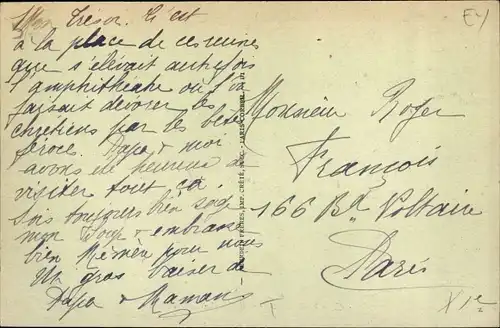 Mon Trésor. C'est
à la place de ces ruines
que s'élevait autrefois
l'amphithéatre où l'on
faisait dévorer les
chrétiens par les bêtes
féroce. Papa & moi
avons été heureux de
visiter tout ça.
Sois toujours bien sage
mon Loup & embrasse
bien Mémère pour nous
Un gros baiser de
Papa & Maman
Monsieur Roger
François
166 Bd Voltaire
Paris
XIe
FRÈRES, IMP. CRÉTÉ, SUCC. PARIS-CORBEIL